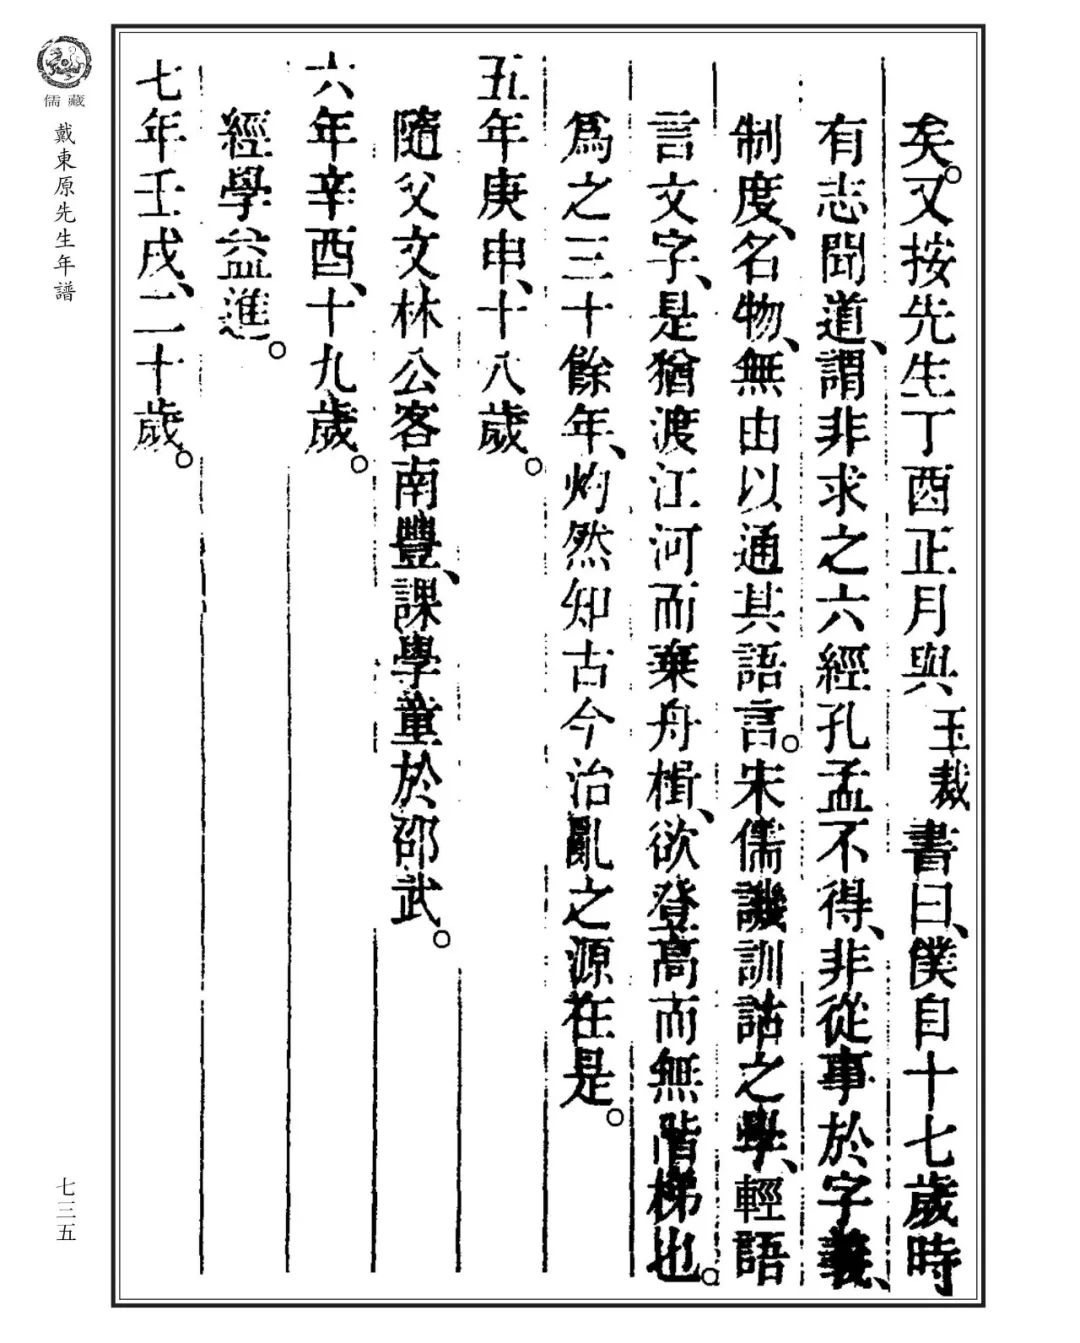 矣。又按先生丁酉正月與玉裁書曰、僕自十七歲時
有志聞道、謂非求之六經孔孟不得、非從事於字義、
制度、名物、無由以通其語言。宋儒譏訓詁之學、輕語
言文字、是猶渡江河而棄舟楫、欲登高而無階梯也。
爲之三十餘年、灼然知古今治亂之源在是。
五年庚申、十八歲。
隨父文林公客南豐、課學童於邵武。
六年辛酉、十九歲。
經學益進。
七年壬戌、二十歲。
儒藏
戴東原先生年譜
七三五